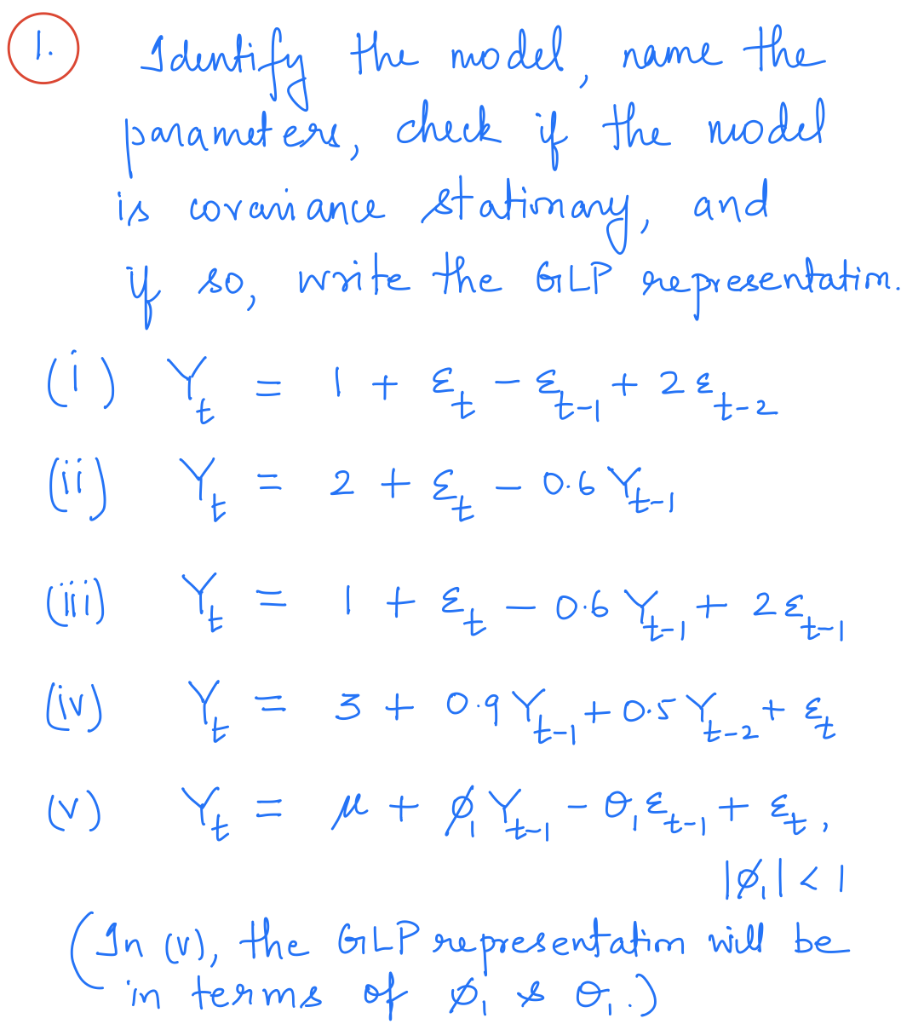 1. Identify the model, name the
parameters, check if the model
is covariance stationary, and
if so, write the GLP representation.
(i) Y_t = 1 + ε_t − ε_{t−1} + 2ε_{t−2}
(ii) Y_t = 2 + ε_t − 0.6 Y_{t−1}
(iii) Y_t = 1 + ε_t − 0.6 Y_{t−1} + 2ε_{t−1}
(iv) Y_t = 3 + 0.9 Y_{t−1} + 0.5 Y_{t−2} + ε_t
(v) Y_t = μ + φ_1 Y_{t−1} − θ_1 ε_{t−1} + ε_t,
|φ_1| < 1
(In (v), the GLP representation will be
in terms of φ_1 & θ_1.)